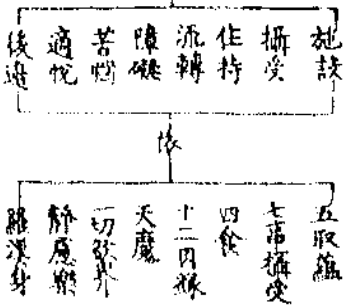 施設
攝受
住持
流轉
障礙
苦惱
適悅
後邊
依
五取蘊
七事攝受
四食
十二因緣
天魔
一切欲界
靜慮樂
羅漢身